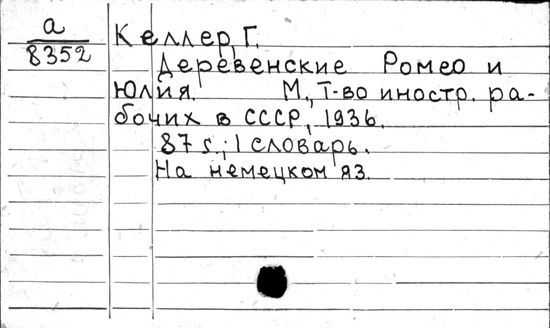 а
8352
Келлер, Г.
Деревенские Ромео и
Юлия. М., Т-во иностр. ра-
бочих в СССР, 1936.
87 s.; 1 словарь.
На немецком яз.